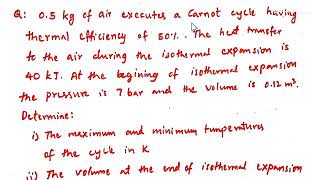 Q: 0.5 kg of air executes a Carnot cycle having
thermal efficiency of 50%. The heat transfer
to the air during the isothermal expansion is
40 kJ. At the begining of isothermal expansion
the pressure is 7 bar and the volume is 0.12 m³.
Determine:
i) The maximum and minimum temperatures
of the cycle in K
ii) The volume at the end of isothermal expansion